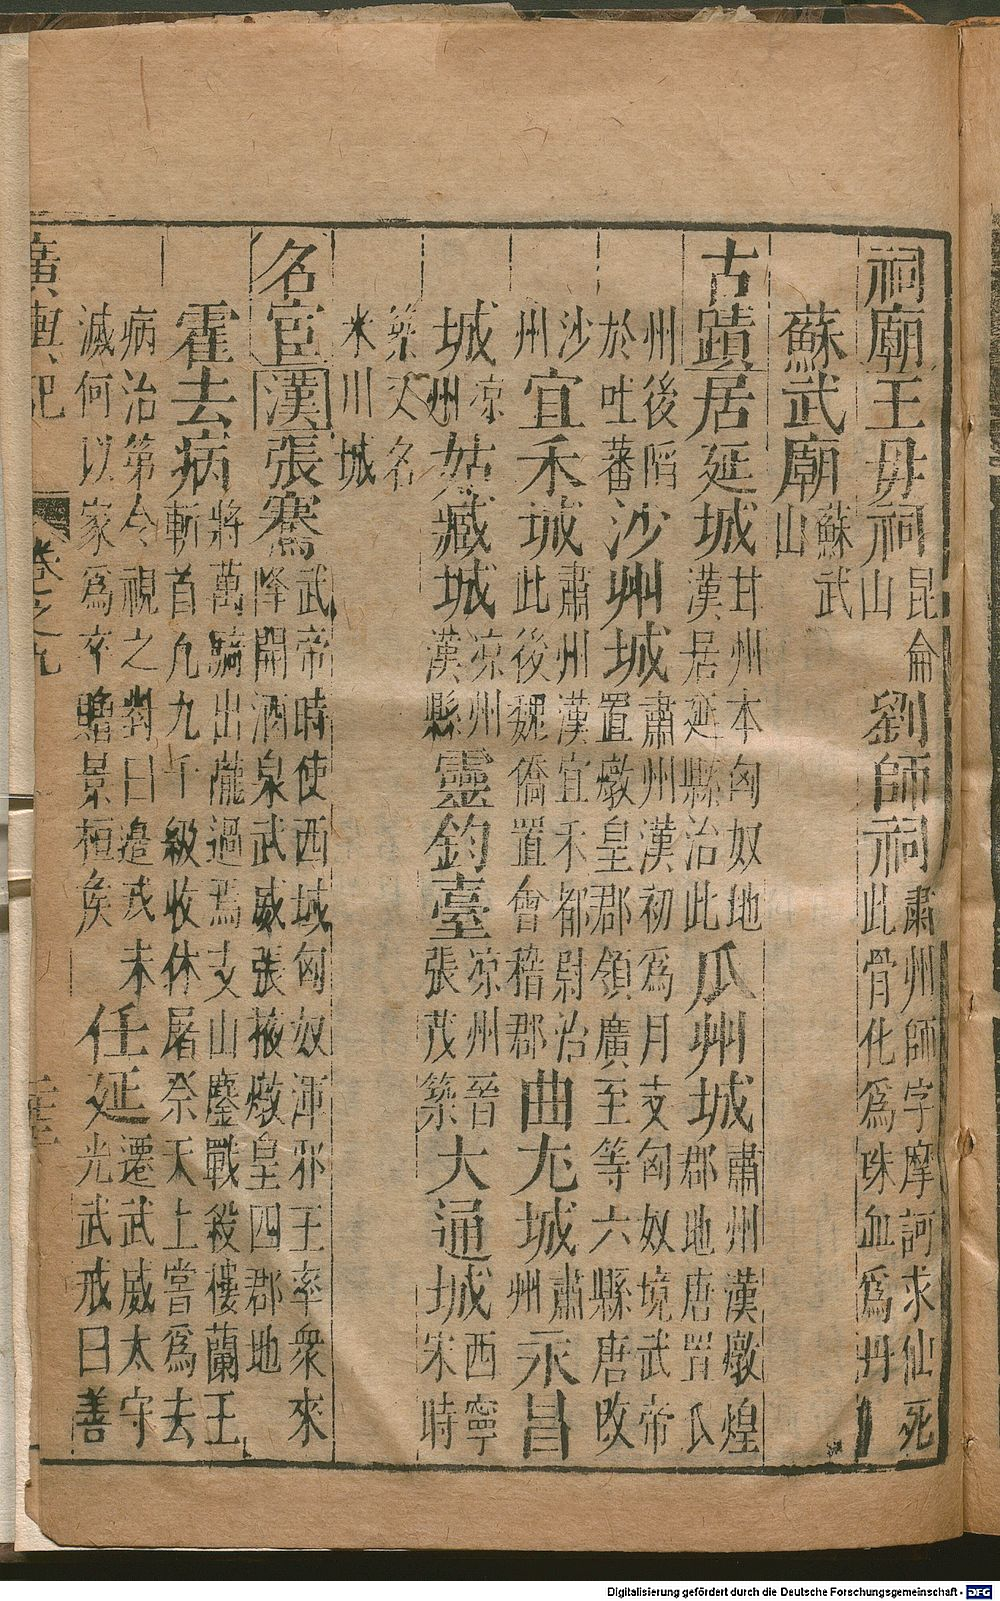 祠廟王母祠昆侖山劉師祠肅州師字摩訶求仙死此骨化爲珠血爲丹
蘇武廟蘇武山
古蹟居延城甘州本匈奴地漢居延縣治此瓜州城肅州漢燉煌郡地唐置瓜
州後陷於吐蕃沙州城肅州漢初爲月支匈奴境武帝置燉皇郡領廣至等六縣唐改
沙州宜禾城肅州漢宜禾都尉治此後魏僑置會稽郡曲尢城肅州永昌
城凉州姑臧城凉州漢縣靈鈞臺凉州晉張茂築大通城西寧宋時
築又名米川城
名宦漢張騫武帝時使西域匈奴渾邪王率衆來降開酒泉武威張掖燉皇四郡地
霍去病將萬騎出隴過焉支山鏖戰殺樓蘭王斬首九九千級收休屠祭天上嘗爲去
病治第令視之對曰邉戎未滅何以家爲卒贈景桓矦任延遷武威太守光武戒曰善
廣輿記 卷之九
Digitalisierung gefördert durch die Deutsche Forschungsgemeinschaft - DFG